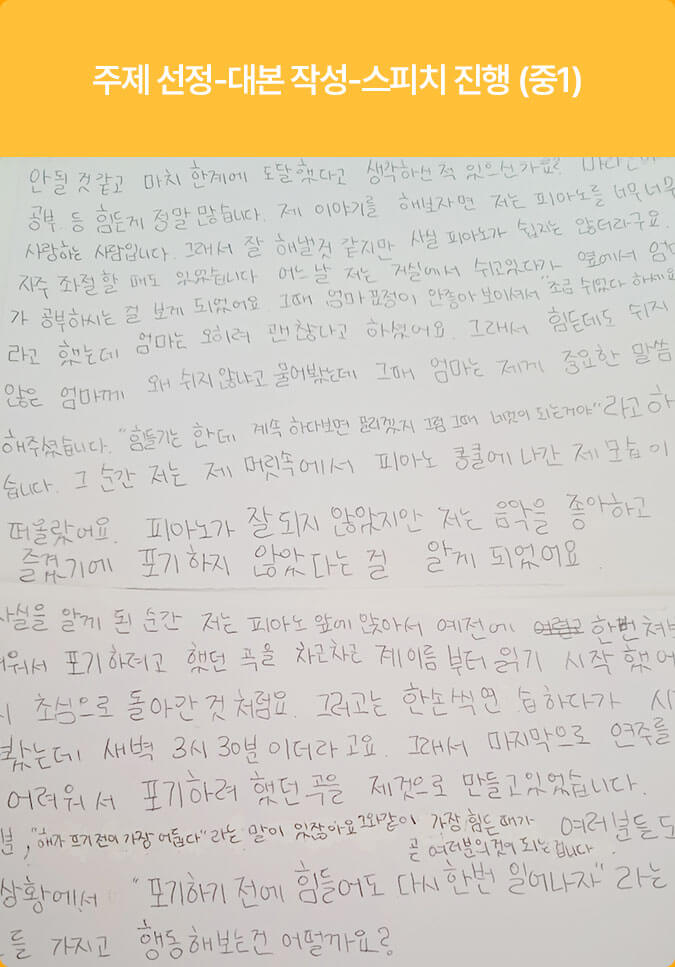 주제 선정-대본 작성-스피치 진행 (중1)
안될 것 같고 마치 한계에 도달했다고 생각하신 적 있으신가요?
공부 등 힘든게 정말 많습니다. 제 이야기를 해보자면 저는 피아노를 너무너무
사랑하는 사람입니다. 그래서 잘 해낼것 같지만 사실 피아노가 쉽지는 않더라구요.
자주 좌절할 때도 있었습니다 어느날 저는 거실에서 쉬고있다가 옆에서 엄
가 공부하시는 걸 보게 되었어요. 그때 엄마 표정이 안좋아 보이셔서 "조금 쉬었다 하세요
라고 했는데 엄마는 오히려 괜찮다고 하셨어요. 그래서 힘든데도 쉬지
않은 엄마께 왜 쉬지 않냐고 물어봤는데 그때 엄마는 제게 중요한 말씀
해주셨습니다. "힘들기는 한데 계속 하다보면 풀리겠지 그럼 그때 네것이 되는거야"라고 하
습니다. 그 순간 저는 제 머릿속에서 피아노 콩쿨에 나간 제 모습이
떠올랐어요. 피아노가 잘 되지 않았지만 저는 음악을 좋아하고
즐겼기에 포기하지 않았다는 걸 알게 되었어요.
사실을 알게 된 순간 저는 피아노 앞에 앉아서 예전에 한번 쳐보
려워서 포기하려고 했던 곡을 차근차근 계이름부터 읽기 시작했어
시 초심으로 돌아간 것처럼요. 그러고는 한손씩 연습하다가 시
봤는데 새벽 3시 30분이더라고요. 그래서 마지막으로 연주를
어려워서 포기하려 했던 곡을 제것으로 만들고 있었습니다.
분, "해가 뜨기 전이 가장 어둡다"라는 말이 있잖아요 그와같이 가장 힘든 때가 여러분들도
곧 여러분의 것이 되는겁니다.
상황에서 "포기하기 전에 힘들어도 다시 한번 일어나자"라는
들 가지고 행동해보는건 어떨까요?